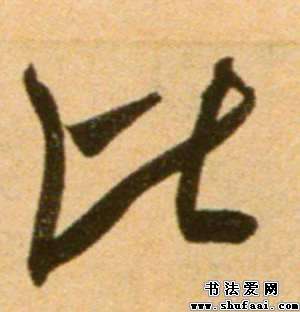 比
书法爱网
www.shufaai.com